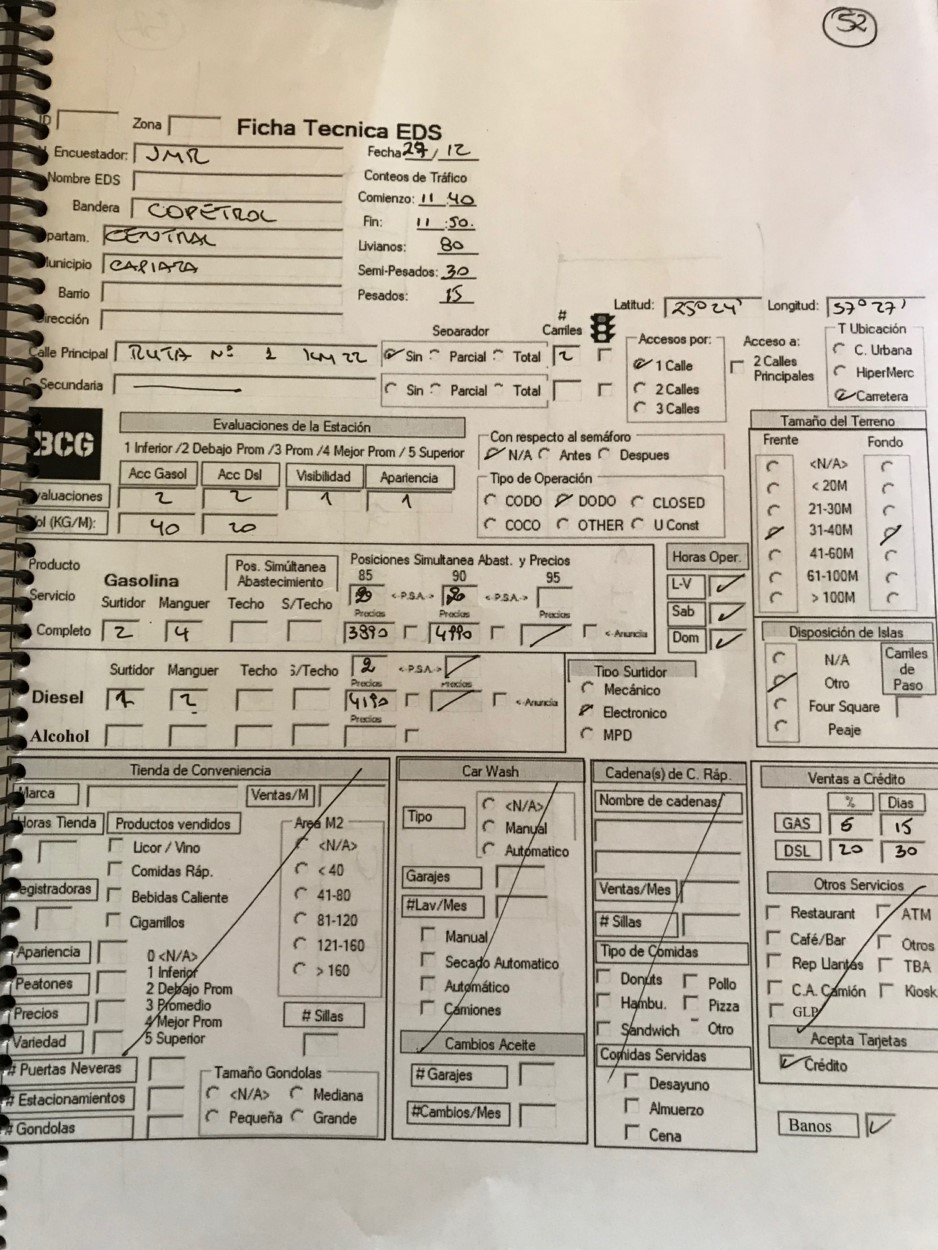 52
ID Zona Ficha Tecnica EDS
Encuestador: JMR Fecha 27/12
Nombre EDS Conteos de Tráfico
Bandera COPETROL Comienzo: 11 40
partam. CENTRAL Fin: 11:50.
unicipio CAPIATA Livianos: 80
Barrio Semi-Pesados: 30
irección Pesados: 15
Latitud: 25º 24' Longitud: 57º 27'
Calle Principal RUTA Nº 1 KM 22 Separador Sin Parcial Total # Carriles 2
Secundaria Sin Parcial Total
Accesos por: 1 Calle 2 Calles 3 Calles
Acceso a: 2 Calles Principales
T Ubicación C. Urbana HiperMerc Carretera
BCG
Evaluaciones de la Estación
1 Inferior /2 Debajo Prom /3 Prom /4 Mejor Prom / 5 Superior
Acc Gasol Acc Dsl Visibilidad Apariencia
valuaciones 2 2 1 1
ol (KG/M): 40 20
Con respecto al semáforo
N/A Antes Despues
Tipo de Operación
CODO DODO CLOSED
COCO OTHER U Const
Tamaño del Terreno
Frente Fondo
<N/A>
< 20M
21-30M
31-40M
41-60M
61-100M
> 100M
Producto
Servicio
Completo
Gasolina
Pos. Simúltanea Abastecimiento
Posiciones Simultanea Abast. y Precios
85 90 95
<-P.S.A-> <-P.S.A->
Precios Precios Precios
Surtidor Manguer Techo S/Techo
2 4 3890 4990 <-Anuncia
Horas Oper.
L-V
Sab
Dom
Disposición de Islas
N/A
Otro
Four Square
Peaje
Carriles de Paso
Surtidor Manguer Techo S/Techo 2 <-P.S.A->
Precios Precios
Diesel 1 2 4190 <-Anuncia
Precios
Alcohol
Tipo Surtidor
Mecánico
Electronico
MPD
Tienda de Conveniencia
Marca Ventas/M
Horas Tienda Productos vendidos Area M2
Licor / Vino <N/A>
Comidas Ráp. < 40
egistradoras Bebidas Caliente 41-80
Cigarrillos 81-120
121-160
> 160
Apariencia 0 <N/A>
1 Inferior
Peatones 2 Debajo Prom
Precios 3 Promedio # Sillas
4 Mejor Prom
Variedad 5 Superior
# Puertas Neveras Tamaño Gondolas
# Estacionamientos <N/A> Mediana
# Gondolas Pequeña Grande
Car Wash
Tipo <N/A>
Manual
Automatico
Garajes
#Lav/Mes
Manual
Secado Automatico
Automático
Camiones
Cambios Aceite
# Garajes
#Cambios/Mes
Cadena(s) de C. Ráp.
Nombre de cadenas
Ventas/Mes
# Sillas
Tipo de Comidas
Donuts Pollo
Hambu. Pizza
Sandwich Otro
Comidas Servidas
Desayuno
Almuerzo
Cena
Ventas a Crédito
% Dias
GAS 5 15
DSL 20 30
Otros Servicios
Restaurant ATM
Café/Bar Otros
Rep Llantas TBA
C.A. Camión Kiosk
GLP
Acepta Tarjetas
Crédito
Banos